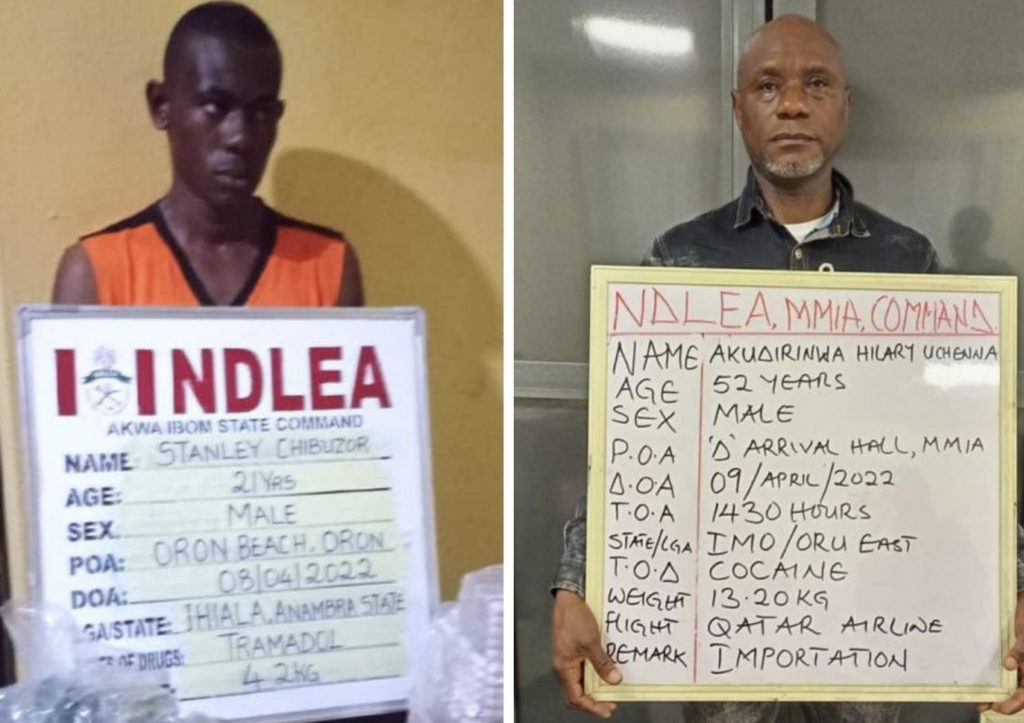 NDLEA
AKWA IBOM STATE COMMAND
NAME: STANLEY CHIBUZOR
AGE: 21 YRS
SEX: MALE
POA: ORON BEACH, ORON
DOA: 08/04/2022
GA/STATE: IHIALA, ANAMBRA STATE
OF DRUGS: TRAMADOL
4.2KG
NDLEA, MMIA, COMMAND.
NAME AKUDIRINWA HILARY UCHENNA
AGE 52 YEARS
SEX MALE
P.O.A 'D' ARRIVAL HALL, MMIA
D.O.A 09/APRIL/2022
T.O.A 1430 HOURS
STATE/LGA IMO/ORU EAST
T.O.D COCAINE
WEIGHT 13.20KG
FLIGHT QATAR AIRLINE
REMARK IMPORTATION